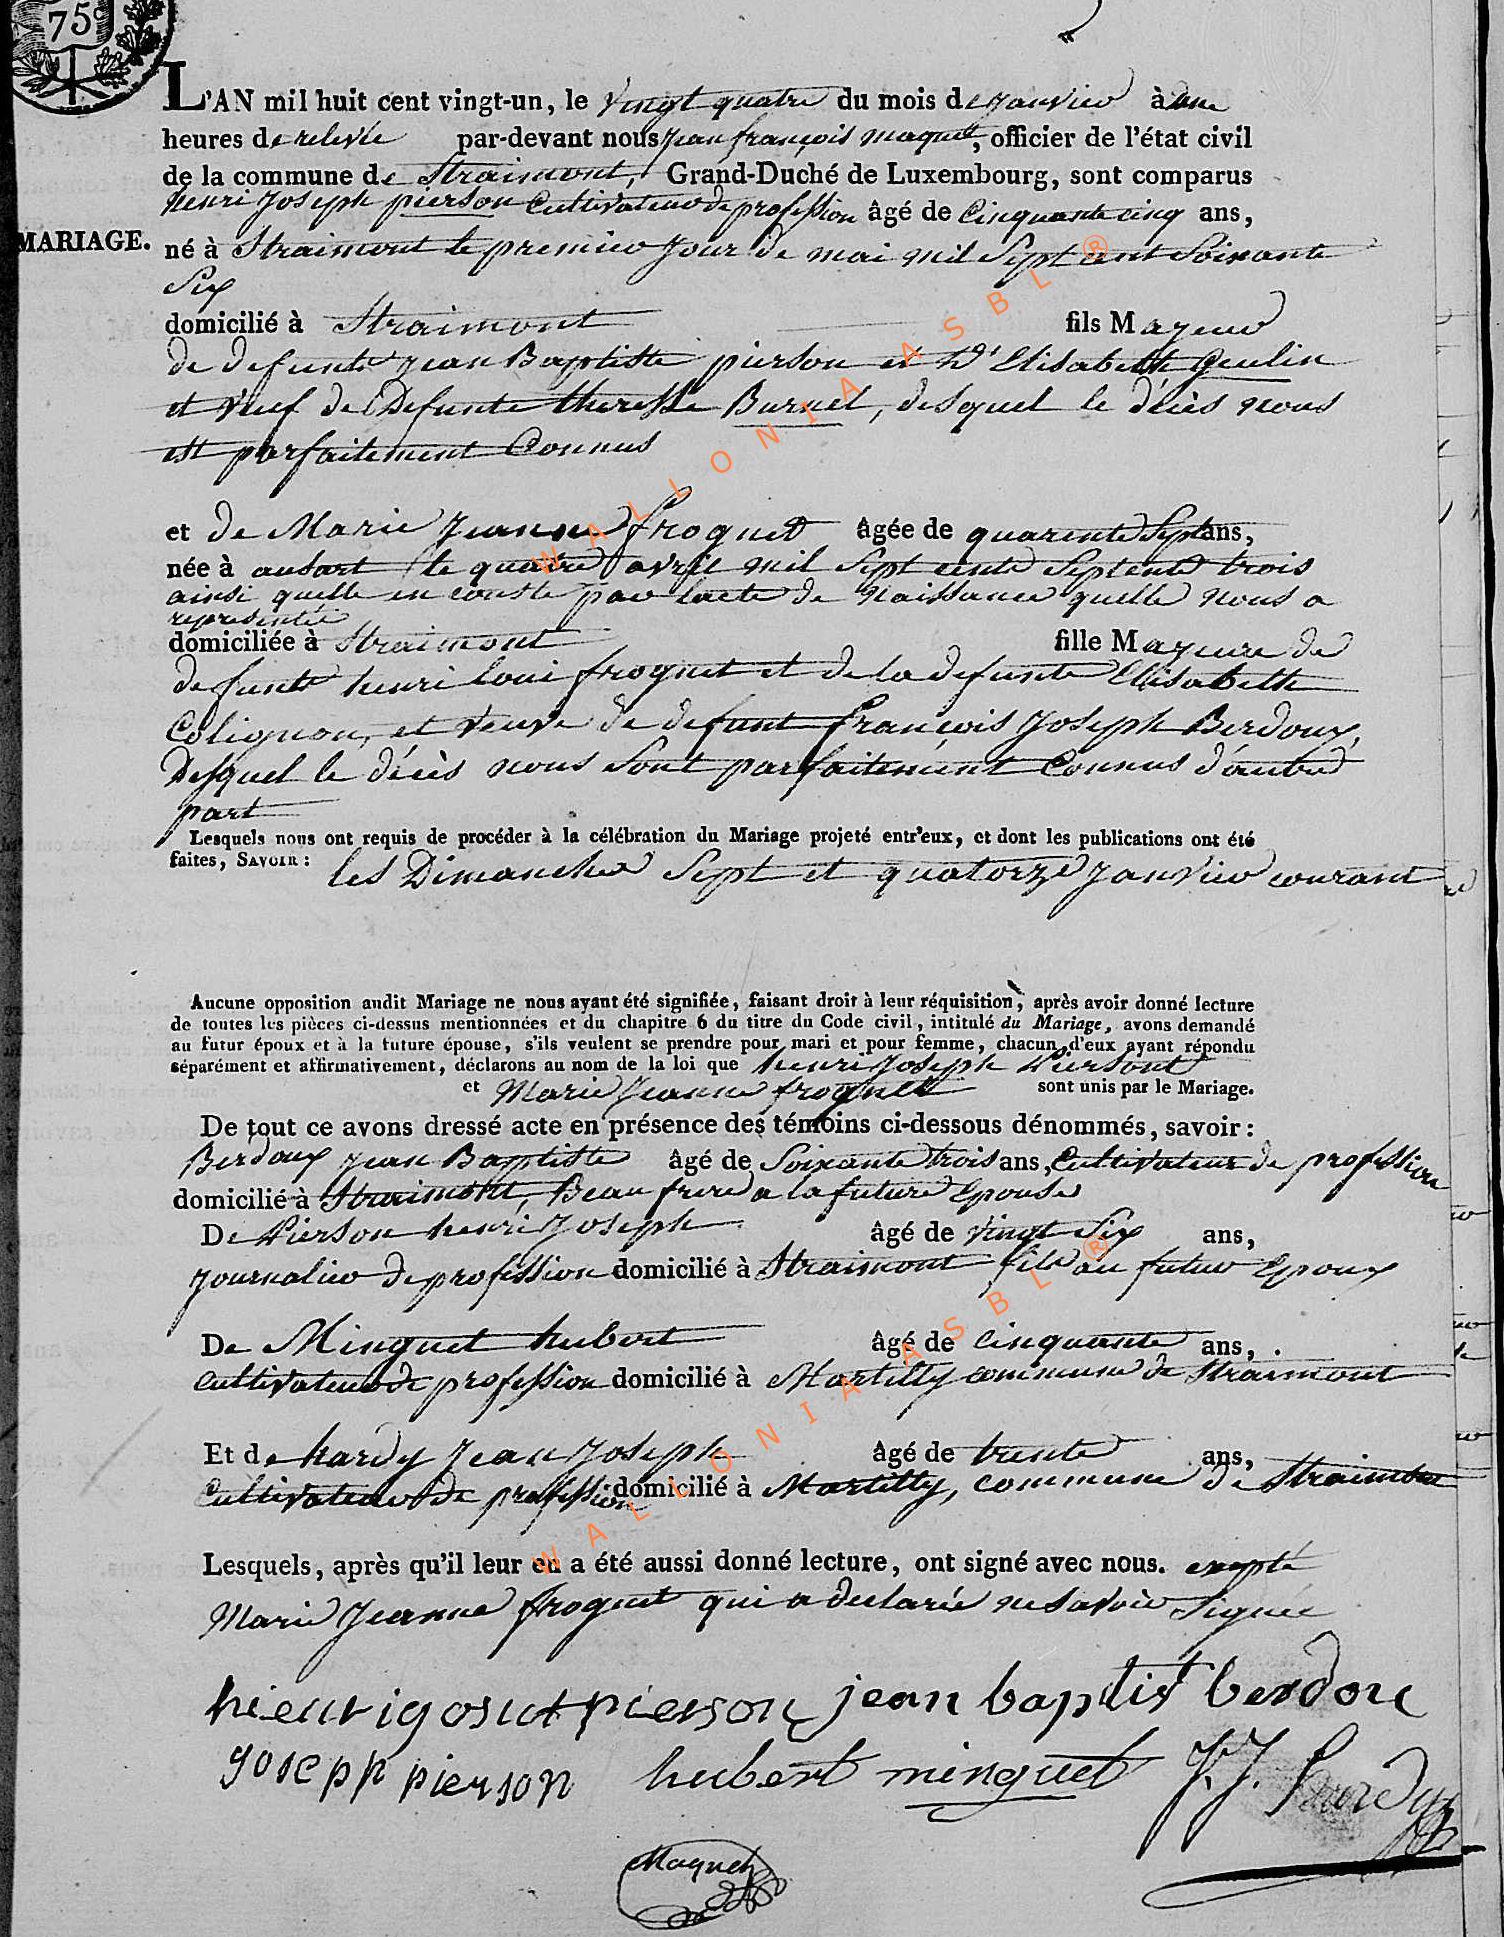 75c
L'AN mil huit cent vingt-un, le vingt quatre du mois de janvier à une
heures de relevée par-devant nous jean françois maquet, officier de l'état civil
de la commune de Straimont, Grand-Duché de Luxembourg, sont comparus
henri Joseph pierson Cultivateur de profession âgé de Cinquante cinq ans,
MARIAGE. né à Straimont le premier jour de mai mil Sept cent Soixante
Six
domicilié à Straimont fils Majeur
de defunts jean Baptiste pierson et d' Elisabeth Geulin
et veuf de Defunte theresse Burnel, desquel le décès nous
est parfaitement Connus
et de Marie Jeanne froguet âgée de quarente Sept ans,
née à ausart le quatre avril mil Sept cente Septente trois
ainsi quelle en conste par lacte de naissance quelle nous a
representée
domiciliée à Straimont fille Majeure de
defunt henri loui froguet et de la defunte Elisabeth
Colignon, et veuve de defunt françois Joseph Berdoux,
Desquel le décès nous Sont parfaitement Connus d'autre
part
Lesquels nous ont requis de procéder à la célébration du Mariage projeté entr'eux, et dont les publications ont été
faites, SAVOIR : les Dimanches Sept et quatorze janvier courant
Aucune opposition audit Mariage ne nous ayant été signifiée, faisant droit à leur réquisition, après avoir donné lecture
de toutes les pièces ci-dessus mentionnées et du chapitre 6 du titre du Code civil, intitulé du Mariage, avons demandé
au futur époux et à la future épouse, s'ils veulent se prendre pour mari et pour femme, chacun d'eux ayant répondu
séparément et affirmativement, déclarons au nom de la loi que henri Joseph Piersont
et Marie Jeanne froguet sont unis par le Mariage.
De tout ce avons dressé acte en présence des témoins ci-dessous dénommés, savoir :
Berdoux jean Baptiste âgé de Soixante trois ans, Cultivateur de profession
domicilié à Straimont, Beau frere a la future Epouse
De Pierson henri Joseph âgé de vingt Six ans,
journalier de profession domicilié à Straimont fils au futur Epoux
De Minguet hubert âgé de cinquante ans,
cultivateur de profession domicilié à Martilly commune de Straimont
Et de hardy Jean Joseph âgé de trente ans,
Cultivateur de profession domicilié à Martilly, commune de Straimont
Lesquels, après qu'il leur en a été aussi donné lecture, ont signé avec nous. exepté
Marie Jeanne froguet qui a declarée ne savoir Signée
hieurigosuet pierson jean baptist berdou
gosepp pierson hubert minguet J. J. hardy
Maquet
WALLONIA ASBL ®
WALLONIA ASBL ®